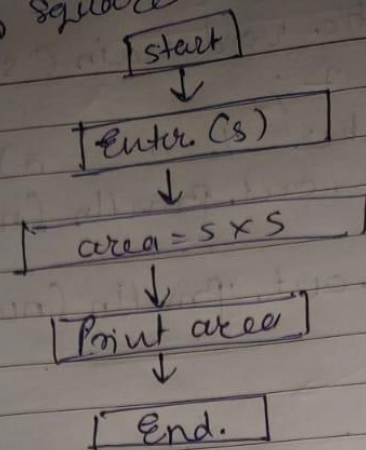 Square
Start
Enter. (s)
area = s × s
Print area
End.